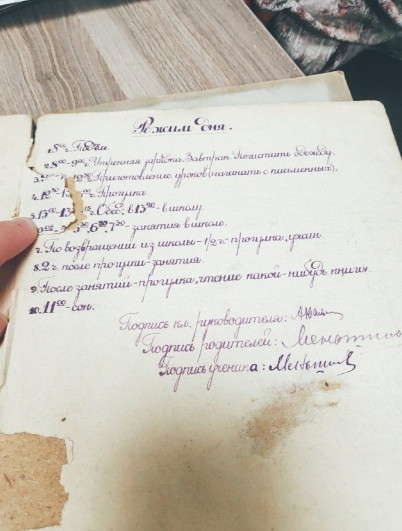 Режим дня.
1. 8⁰⁰ Подъём.
2. 8⁰⁰-9⁰⁰ Утренняя зарядка. Завтрак. Почистить одежду.
3. Приготовление уроков (начинать с письменных).
4. 12³⁰ Прогулка
5. 13⁰⁰ Обед; в 13⁴⁰ - в школу.
7³⁰ - занятия в школе.
7. По возвращении из школы - 1/2 ч - прогулка, ужин.
8. 2 ч. после прогулки - занятия.
9. После занятий - прогулка, чтение какой-нибудь книги.
10. 11⁰⁰ - сон.
Подпись кл. руководителя:
Подпись родителей:
Подпись ученика: Меньшов